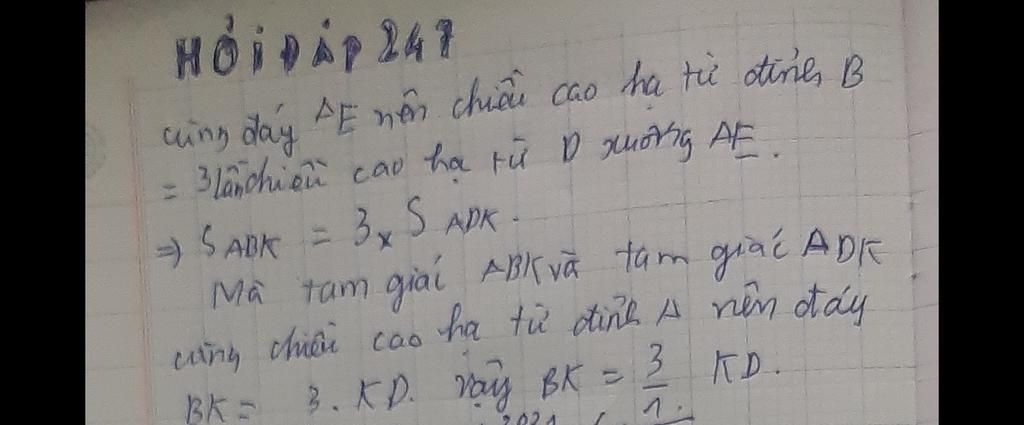 HỎI ĐÁP 247
cùng đáy AE nên chiều cao hạ từ đỉnh B
= 3 lần chiều cao hạ từ D xuống AE.
=> S ABK = 3 x S ADK.
Mà tam giác ABK và tam giác ADK
cùng chiều cao hạ từ đỉnh A nên đáy
BK = 3. KD. Vậy BK = 3/1 KD.
2021